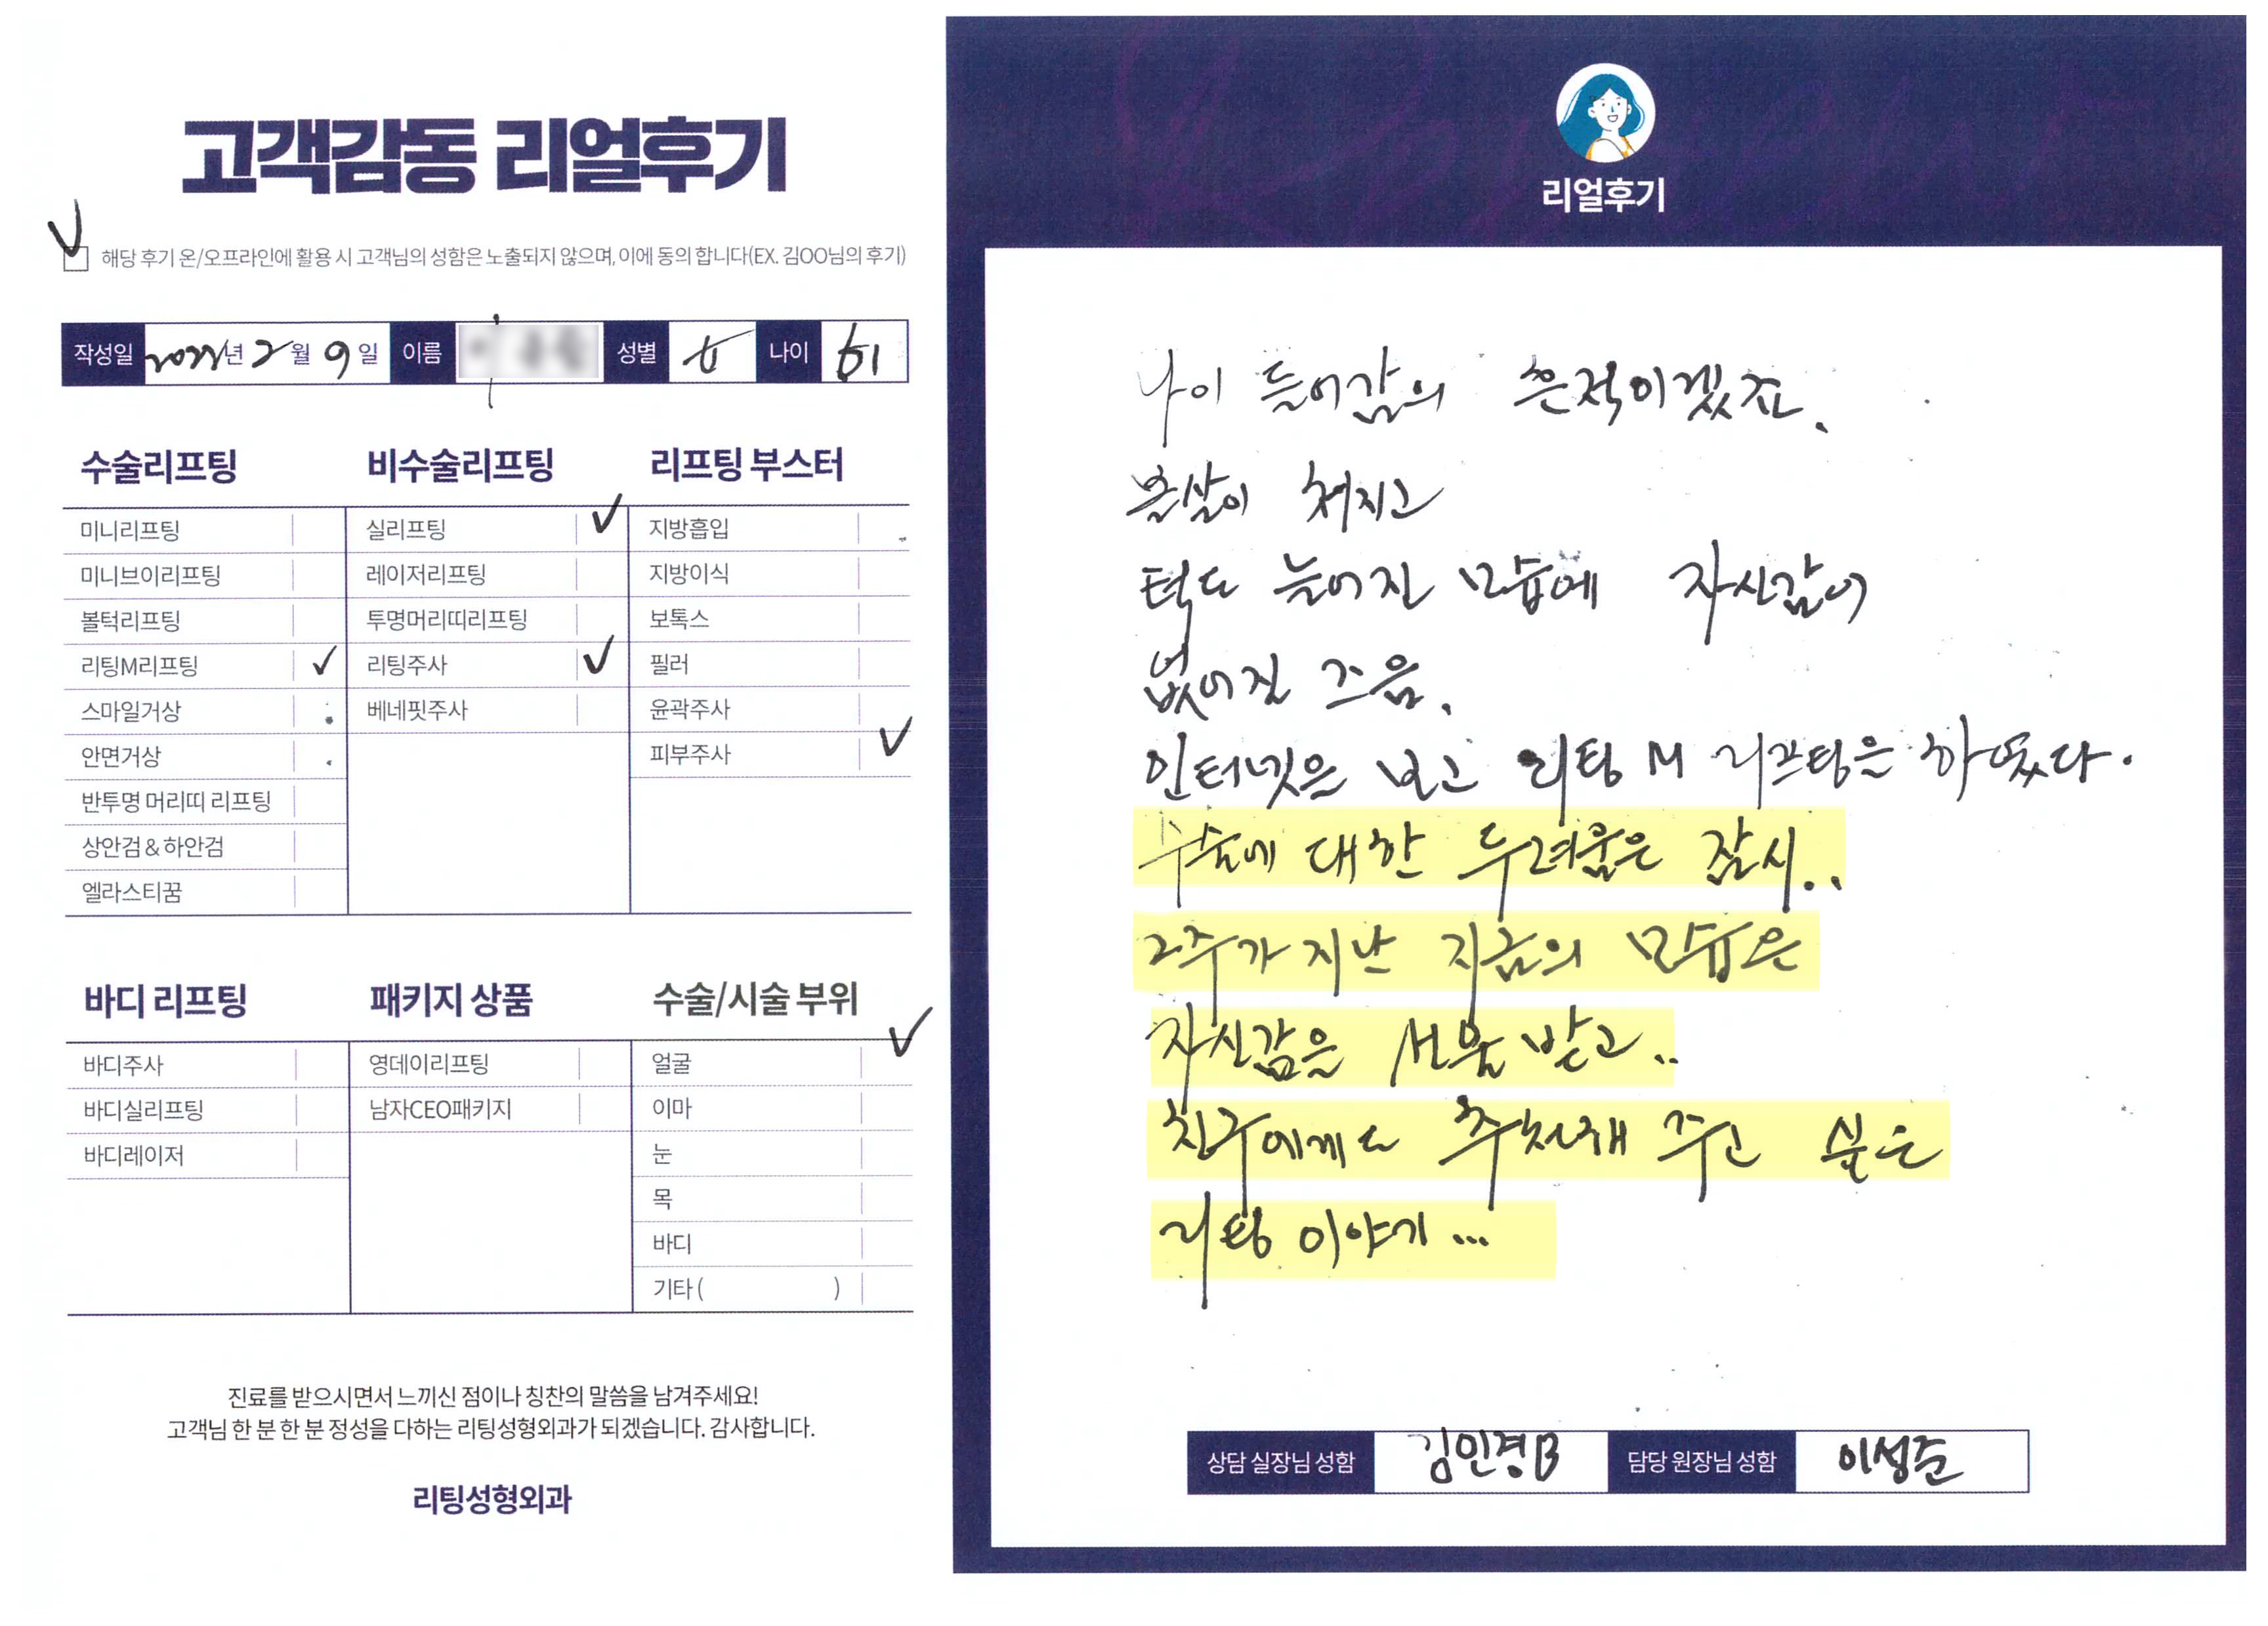 고객감동 리얼후기
해당 후기 온/오프라인에 활용 시 고객님의 성함은 노출되지 않으며, 이에 동의 합니다(EX. 김OO님의 후기)
작성일 년 2월 9일 이름 성별 女 나이 61
수술리프팅
미니리프팅
미니브이리프팅
볼턱리프팅
리팅M리프팅 ✓
스마일거상
안면거상
반투명 머리띠 리프팅
상안검&하안검
엘라스티꿈
비수술리프팅
실리프팅 ✓
레이저리프팅
투명머리띠리프팅
리팅주사 ✓
베네핏주사
리프팅 부스터
지방흡입
지방이식
보톡스
필러
윤곽주사
피부주사 ✓
바디 리프팅
바디주사
바디실리프팅
바디레이저
패키지 상품
영데이리프팅
남자CEO패키지
수술/시술 부위
얼굴 ✓
이마
눈
목
바디
기타 ( )
진료를 받으시면서 느끼신 점이나 칭찬의 말씀을 남겨주세요!
고객님 한 분 한 분 정성을 다하는 리팅성형외과가 되겠습니다. 감사합니다.
리팅성형외과
리얼후기
나이 들어감의 흔적이겠죠.
볼살이 쳐지고
턱도 늘어진 모습에 자신감이
없어질 즈음.
인터넷을 보고 리팅 M 리프팅을 하였다.
수술에 대한 두려움은 잠시..
2주가 지난 지금의 모습은
자신감을 선물 받고..
친구에게도 추천해 주고 싶은
리팅 이야기...
상담 실장님 성함 김민경B 담당 원장님 성함 이성준